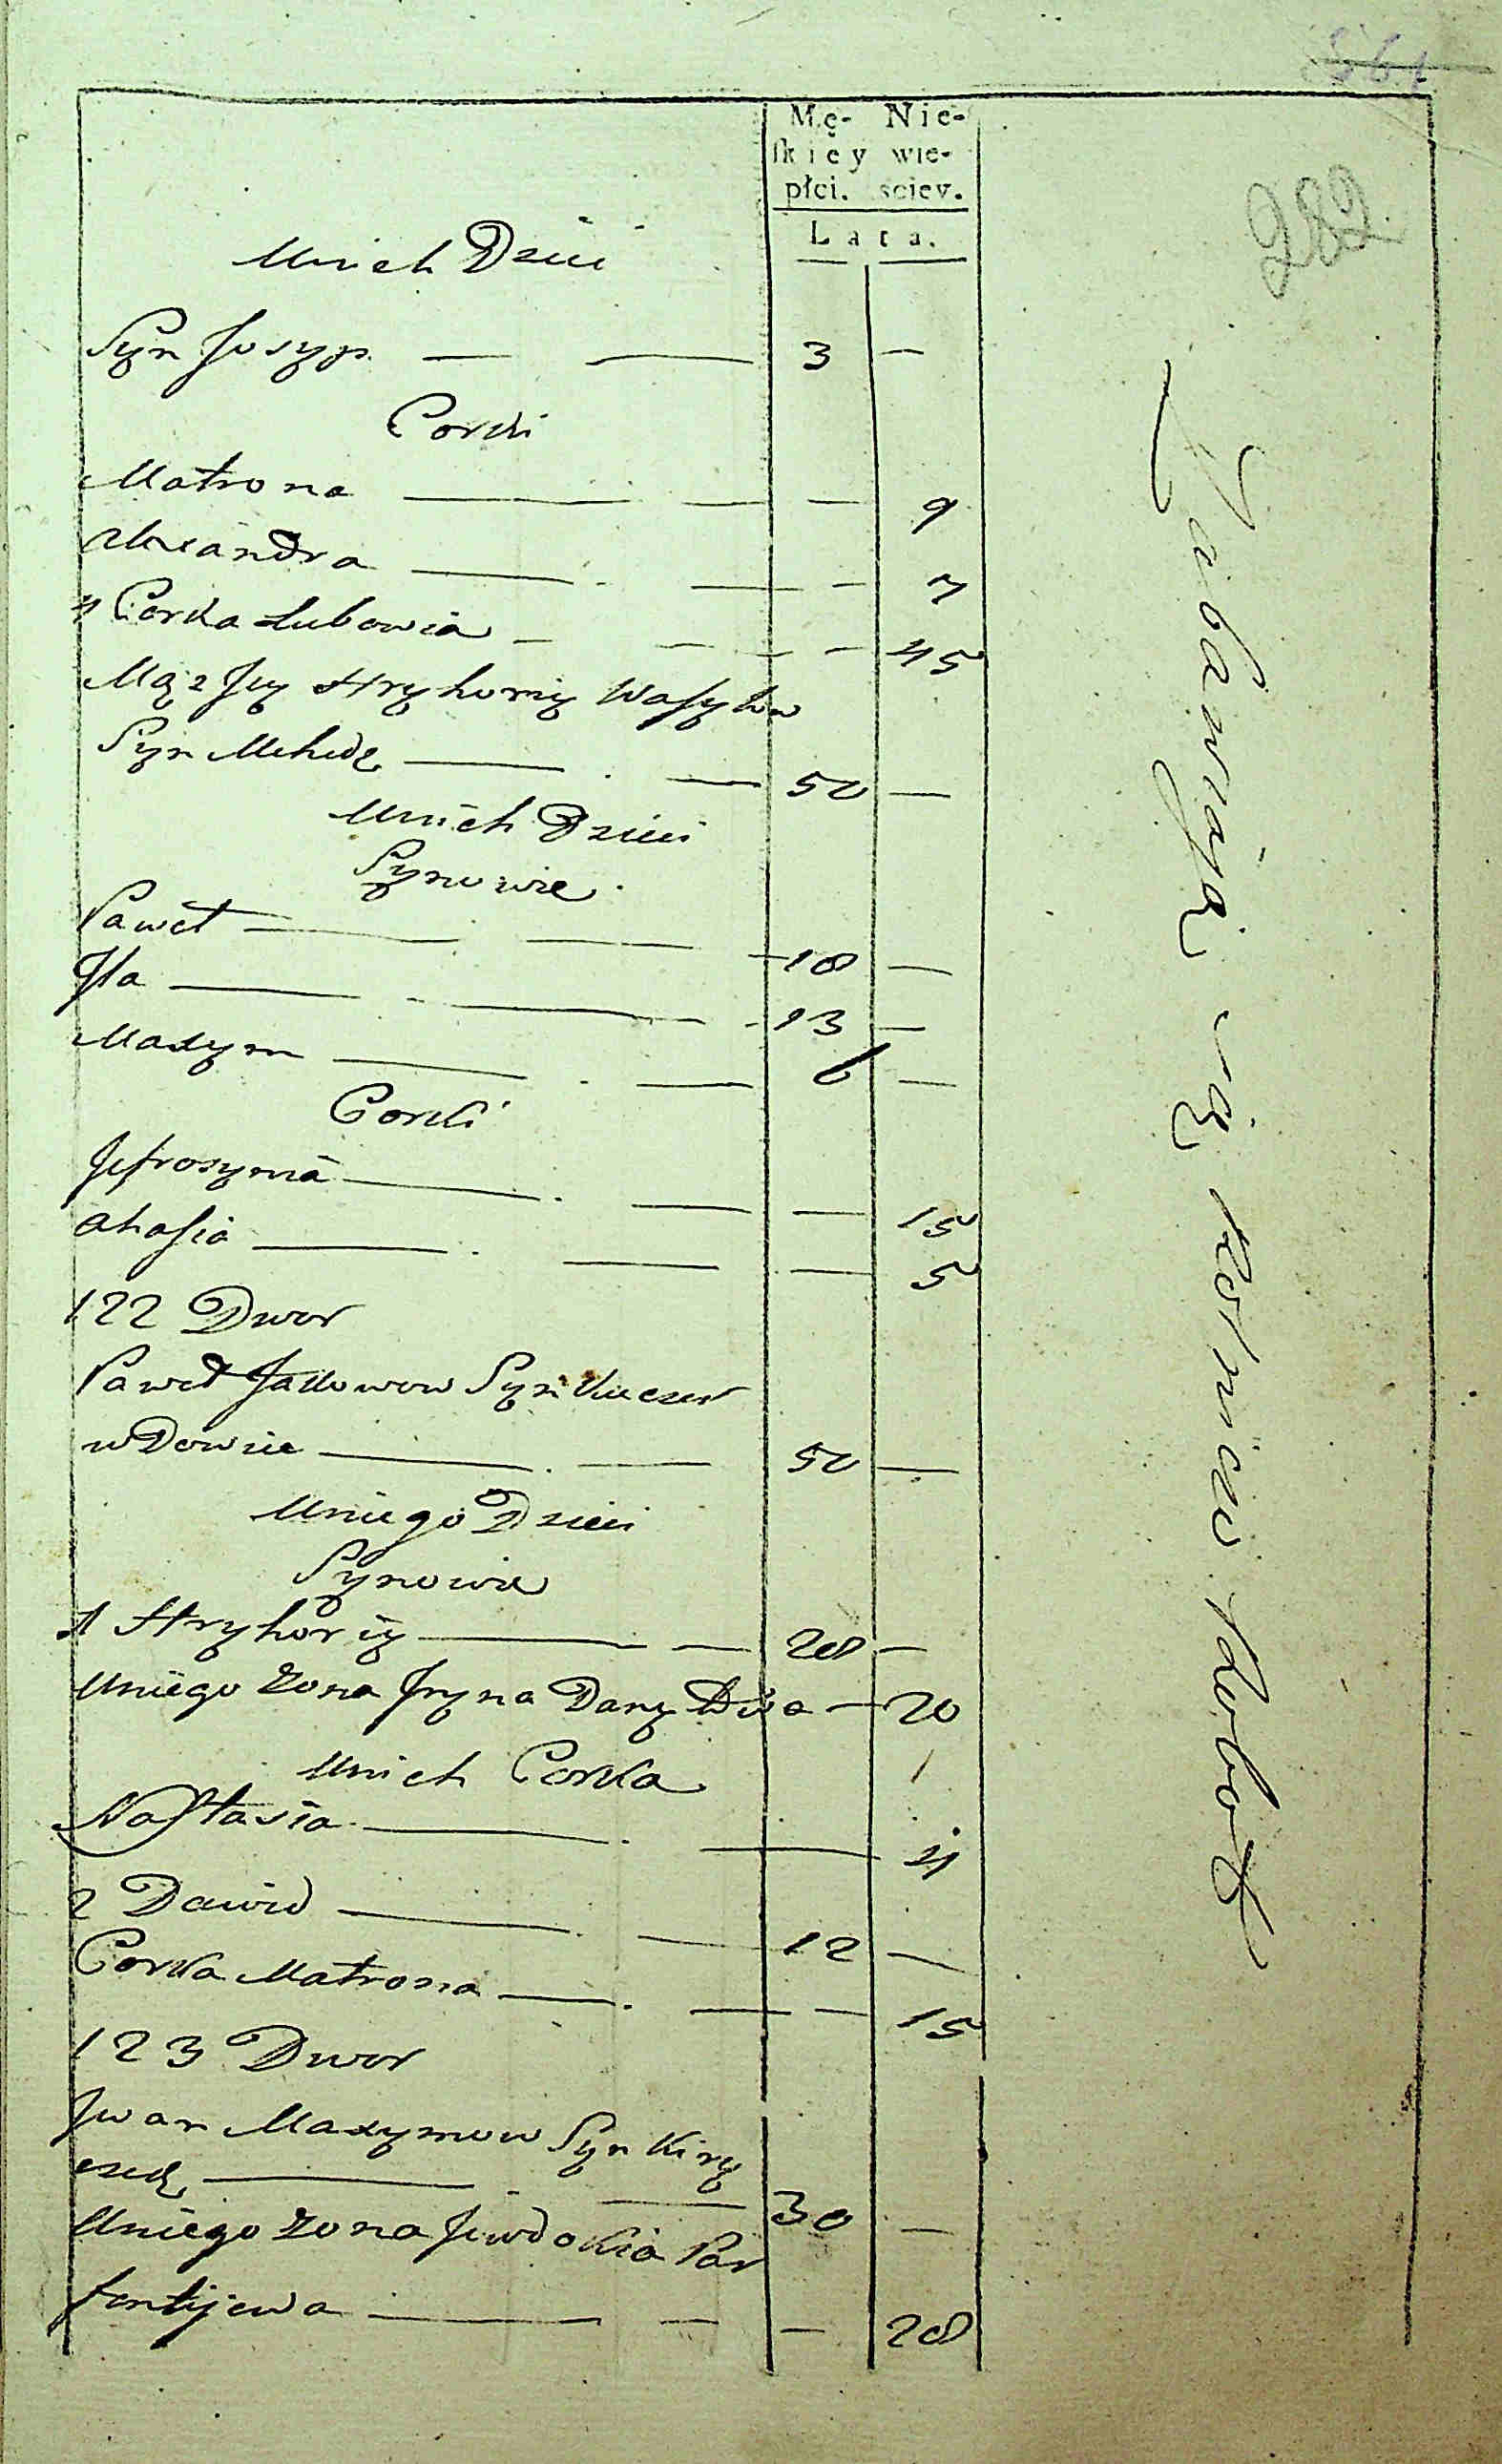 282
Mę- Nie-
skiey wie-
płci. sciey.
Lata.
Unich Dzieci
Syn Josyp 3 —
Corki
Matrona — 9
Alexandra — 7
1 Corka Lubowia — 45
Mąż Jey Hryhoriy Wasylow
Syn 50 —
Unich Dzieci
Synowie
Paweł 18 —
Jla 13 —
Maxym 6 —
Corki
Jefrosynia — 15
Ahafia — 5
122 Dwor
Paweł Jakowow Syn Kuczer
wDowiec 50 —
Uniego Dzieci
Synowie
1 Hryhoriy 28 —
Uniego Zona Jryna Dany — 20
Unich Corka
Nastasia — 4
2 Dawid 12 —
Corka Matrona — 15
123 Dwor
Jwan Maxymow Syn Kiry
30 —
Uniego Zona Jewdokia Par
fentijewa — 28
Zabawiają się rolniczą Robotą